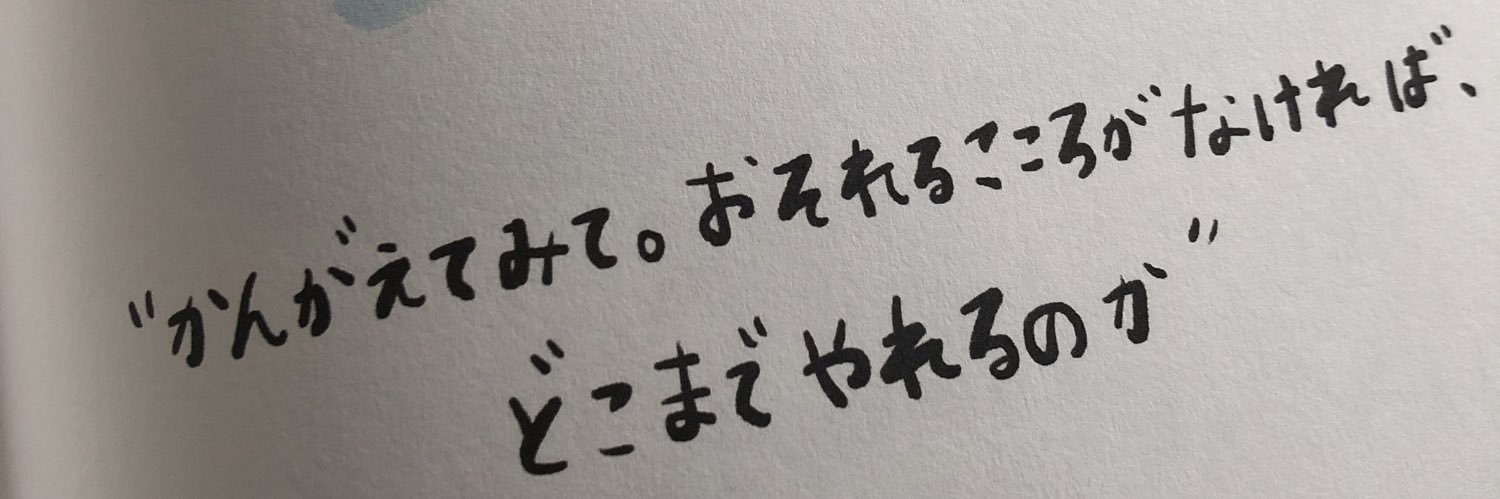 "かんがえてみて。おそれるこころがなければ、
どこまでやれるのか"